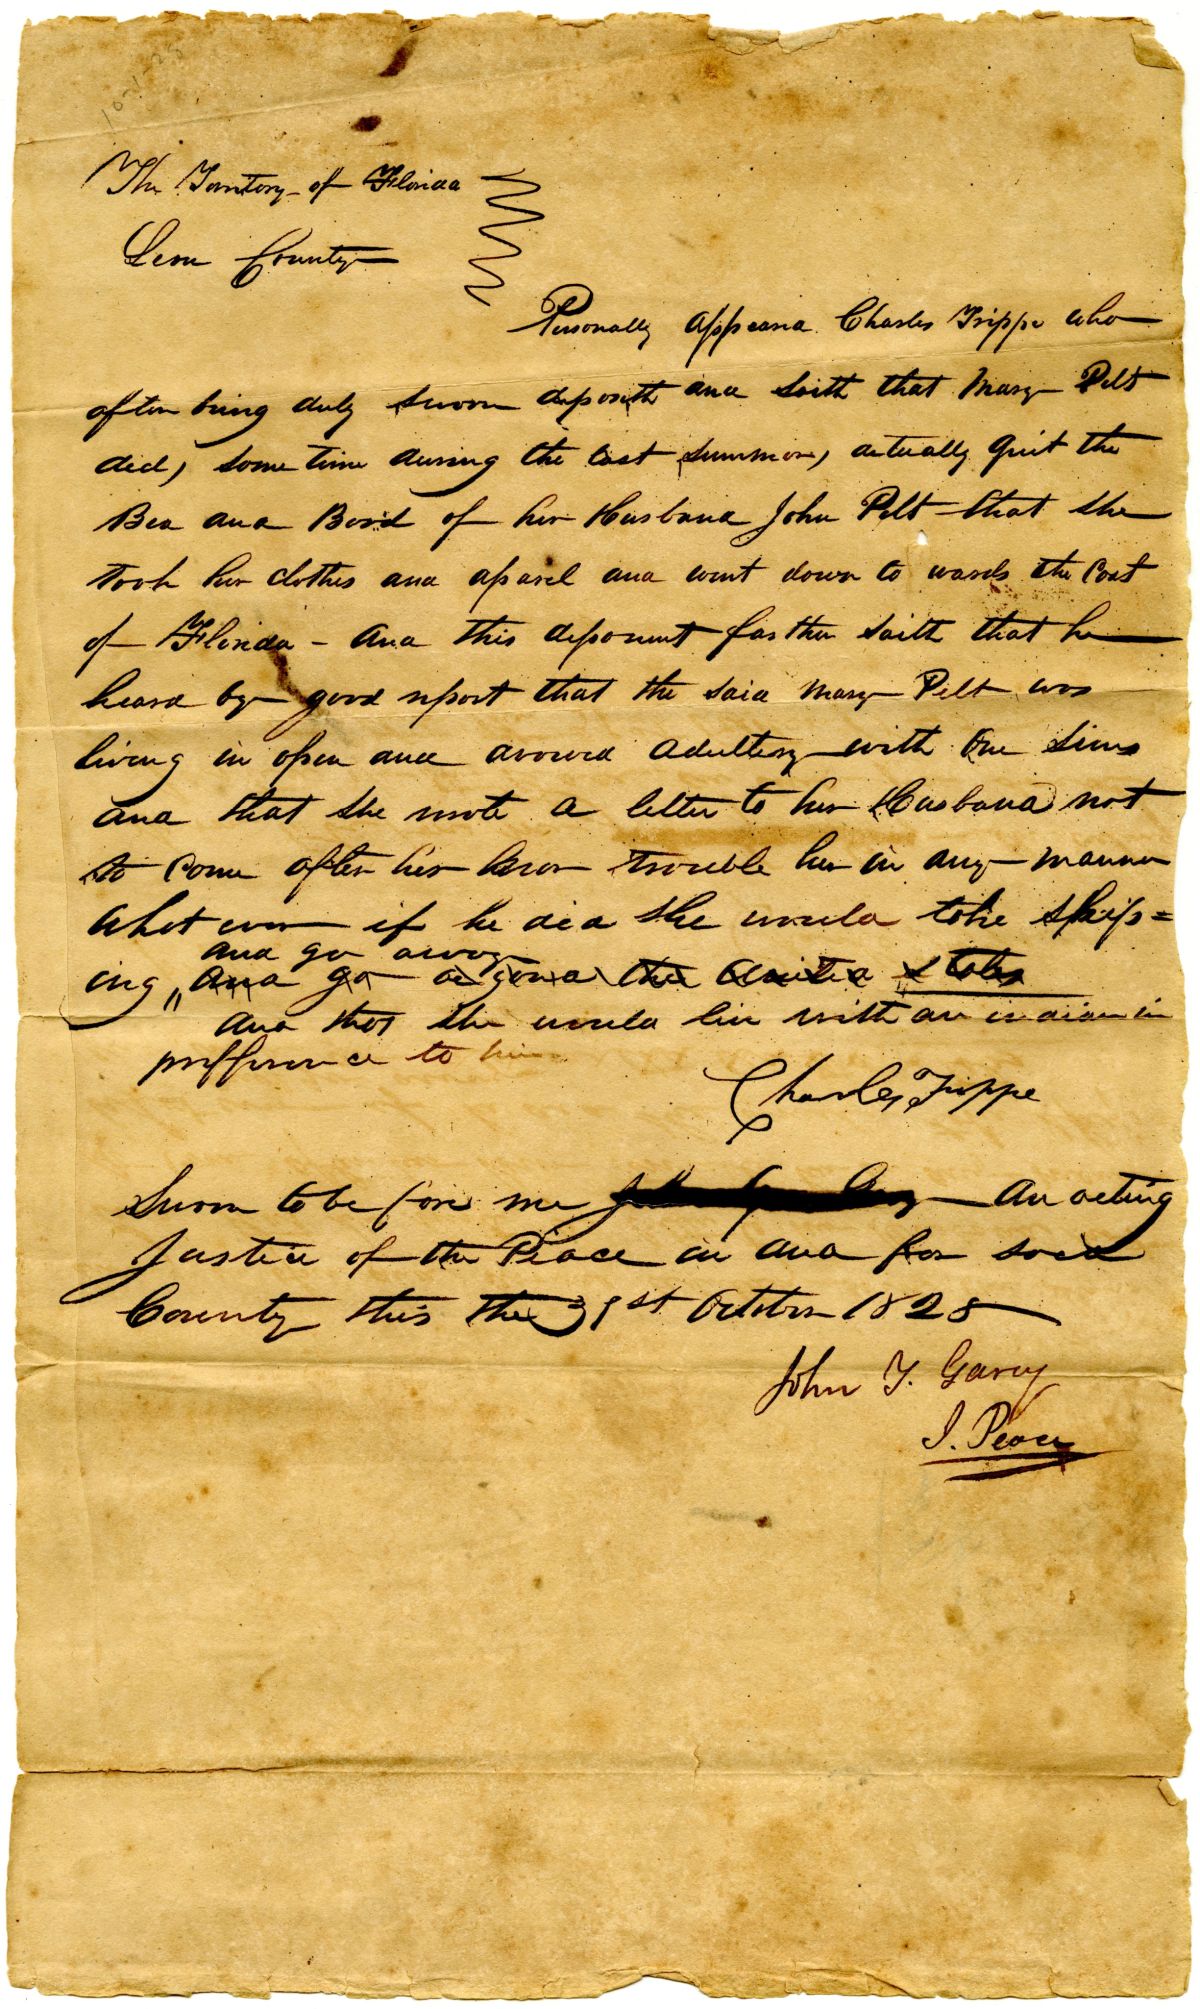 10-31-28
The Territory of Florida
Leon County
Personally Appeard Charles Trippe who
after being duly sworn deposeth and saith that Mary Pelt
did, some time during the last summer, actually quit the
Bed and Bord of her Husband John Pelt that she
took her clothes and aparel and went down to wards the Coast
of Florida - And this deponent farther saith that he
heard by good report that the said Mary Pelt was
living in open and avowed adultery with one Sims
and that she wrote a letter to her Husband not
to come after her Nor trouble her in any manner
What ever if he did she would take ship=
and go away
ing " and go a yond the United States
And that she would live with an indian in
prefference to him
Charles Trippe
Sworn to be fore me An acting
Justice of the Peace in and for said
County this the 31st October 1828
John Y. Garey
J. Peace